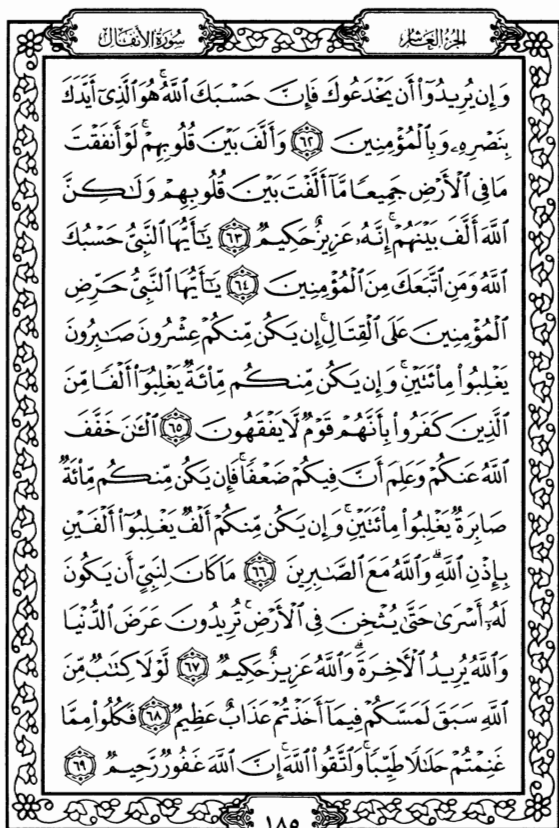 سُورَةُ الأَنفَال الجُزْءُ العَاشِر
وَإِن يُرِيدُوٓا۟ أَن يَخْدَعُوكَ فَإِنَّ حَسْبَكَ ٱللَّهُ ۚ هُوَ ٱلَّذِىٓ أَيَّدَكَ
بِنَصْرِهِۦ وَبِٱلْمُؤْمِنِينَ ﴿٦٢﴾ وَأَلَّفَ بَيْنَ قُلُوبِهِمْ ۚ لَوْ أَنفَقْتَ
مَا فِى ٱلْأَرْضِ جَمِيعًا مَّآ أَلَّفْتَ بَيْنَ قُلُوبِهِمْ وَلَٰكِنَّ
ٱللَّهَ أَلَّفَ بَيْنَهُمْ ۚ إِنَّهُۥ عَزِيزٌ حَكِيمٌ ﴿٦٣﴾ يَٰٓأَيُّهَا ٱلنَّبِىُّ حَسْبُكَ
ٱللَّهُ وَمَنِ ٱتَّبَعَكَ مِنَ ٱلْمُؤْمِنِينَ ﴿٦٤﴾ يَٰٓأَيُّهَا ٱلنَّبِىُّ حَرِّضِ
ٱلْمُؤْمِنِينَ عَلَى ٱلْقِتَالِ ۚ إِن يَكُن مِّنكُمْ عِشْرُونَ صَٰبِرُونَ
يَغْلِبُوا۟ مِا۟ئَتَيْنِ ۚ وَإِن يَكُن مِّنكُم مِّا۟ئَةٌ يَغْلِبُوٓا۟ أَلْفًا مِّنَ
ٱلَّذِينَ كَفَرُوا۟ بِأَنَّهُمْ قَوْمٌ لَّا يَفْقَهُونَ ﴿٦٥﴾ ٱلْـَٰٔنَ خَفَّفَ
ٱللَّهُ عَنكُمْ وَعَلِمَ أَنَّ فِيكُمْ ضَعْفًا ۚ فَإِن يَكُن مِّنكُم مِّا۟ئَةٌ
صَابِرَةٌ يَغْلِبُوا۟ مِا۟ئَتَيْنِ ۚ وَإِن يَكُن مِّنكُمْ أَلْفٌ يَغْلِبُوٓا۟ أَلْفَيْنِ
بِإِذْنِ ٱللَّهِ ۗ وَٱللَّهُ مَعَ ٱلصَّٰبِرِينَ ﴿٦٦﴾ مَا كَانَ لِنَبِىٍّ أَن يَكُونَ
لَهُۥٓ أَسْرَىٰ حَتَّىٰ يُثْخِنَ فِى ٱلْأَرْضِ ۚ تُرِيدُونَ عَرَضَ ٱلدُّنْيَا
وَٱللَّهُ يُرِيدُ ٱلْـَٔاخِرَةَ ۗ وَٱللَّهُ عَزِيزٌ حَكِيمٌ ﴿٦٧﴾ لَّوْلَا كِتَٰبٌ مِّنَ
ٱللَّهِ سَبَقَ لَمَسَّكُمْ فِيمَآ أَخَذْتُمْ عَذَابٌ عَظِيمٌ ﴿٦٨﴾ فَكُلُوا۟ مِمَّا
غَنِمْتُمْ حَلَٰلًا طَيِّبًا ۚ وَٱتَّقُوا۟ ٱللَّهَ ۚ إِنَّ ٱللَّهَ غَفُورٌ رَّحِيمٌ ﴿٦٩﴾
١٨٥